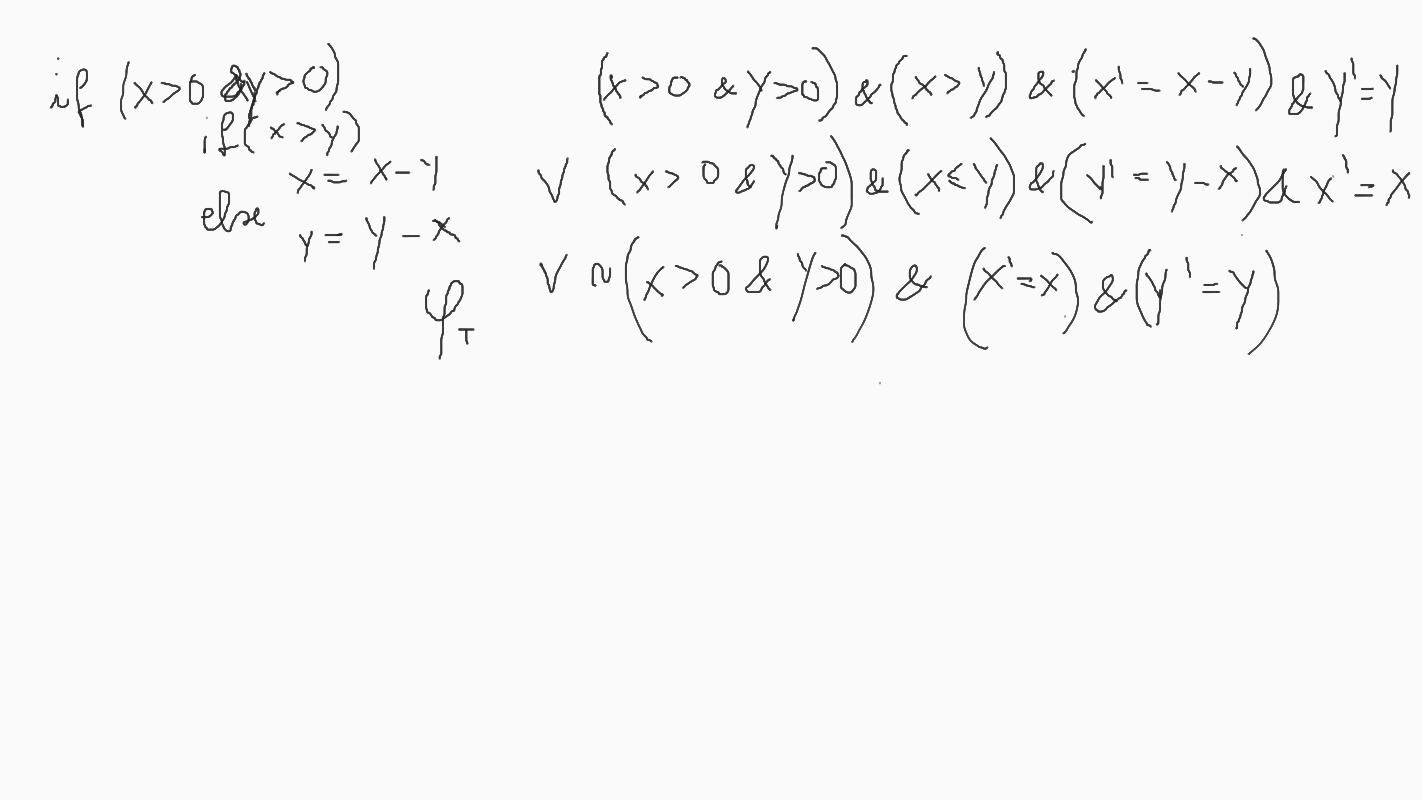 if (x>0 & y>0)
if (x>y)
x = x-y
else
y = y-x
φ_T
(x>0 & y>0) & (x>y) & (x' = x-y) & y'=y
∨ (x>0 & y>0) & (x≤y) & (y' = y-x) & x'=x
∨ ~(x>0 & y>0) & (x'=x) & (y'=y)